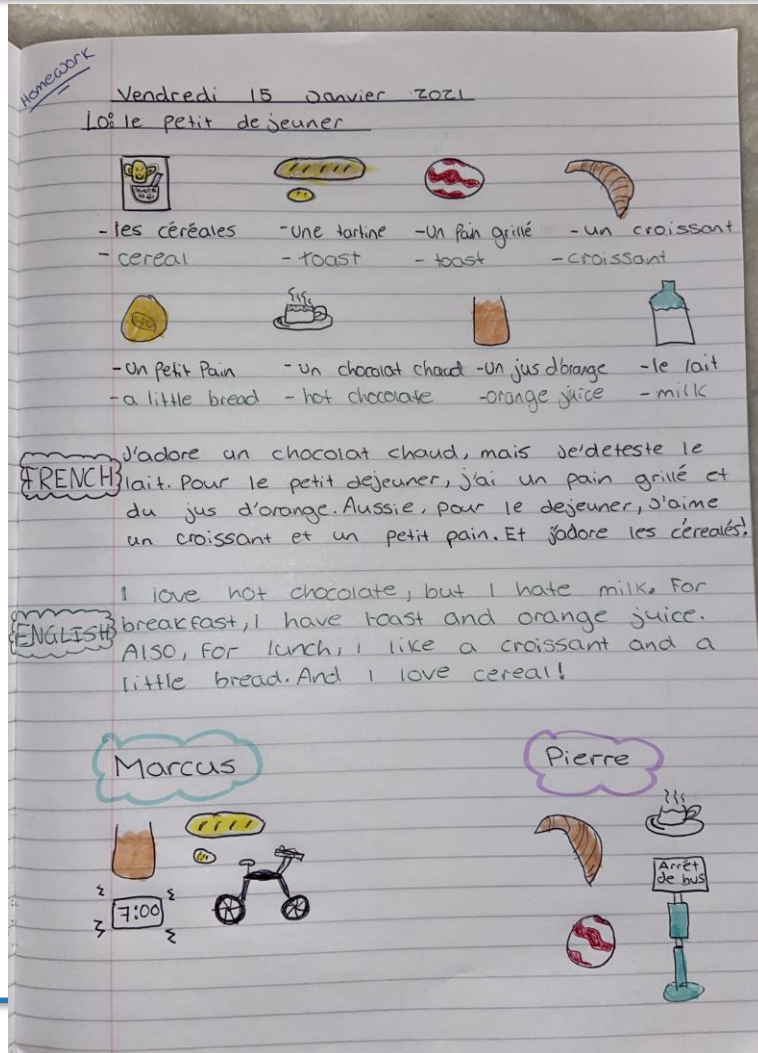 Homework
Vendredi 15 Janvier 2021
LO: le petit dejeuner
- les céréales - une tartine - un Pain grillé - un croissant
- cereal - toast - toast - croissant
- un Petit Pain - un chocolat chaud - un jus d'orange - le lait
- a little bread - hot chocolate - orange juice - milk
FRENCH
J'adore un chocolat chaud, mais Je'deteste le
lait. Pour le petit dejeuner, j'ai un pain grillé et
du jus d'orange. Aussie, pour le dejeuner, J'aime
un croissant et un petit pain. Et j'adore les cérealés!
ENGLISH
I love hot chocolate, but I hate milk. For
breakfast, I have toast and orange juice.
Also, for lunch, I like a croissant and a
little bread. And I love cereal!
Marcus
Pierre
7:00
Arrêt
de bus